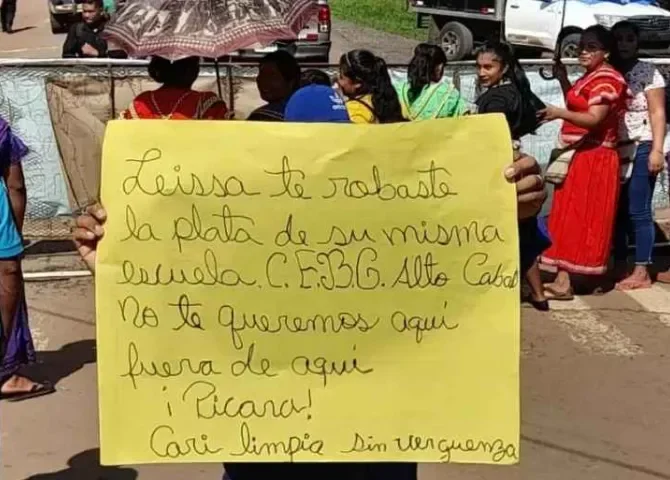 Leissa te robaste
la plata de su misma
escuela. C.E.B.G. Alto Cabal
No te queremos aquí
fuera de aquí
¡Picara!
Cari limpia sin verguenza